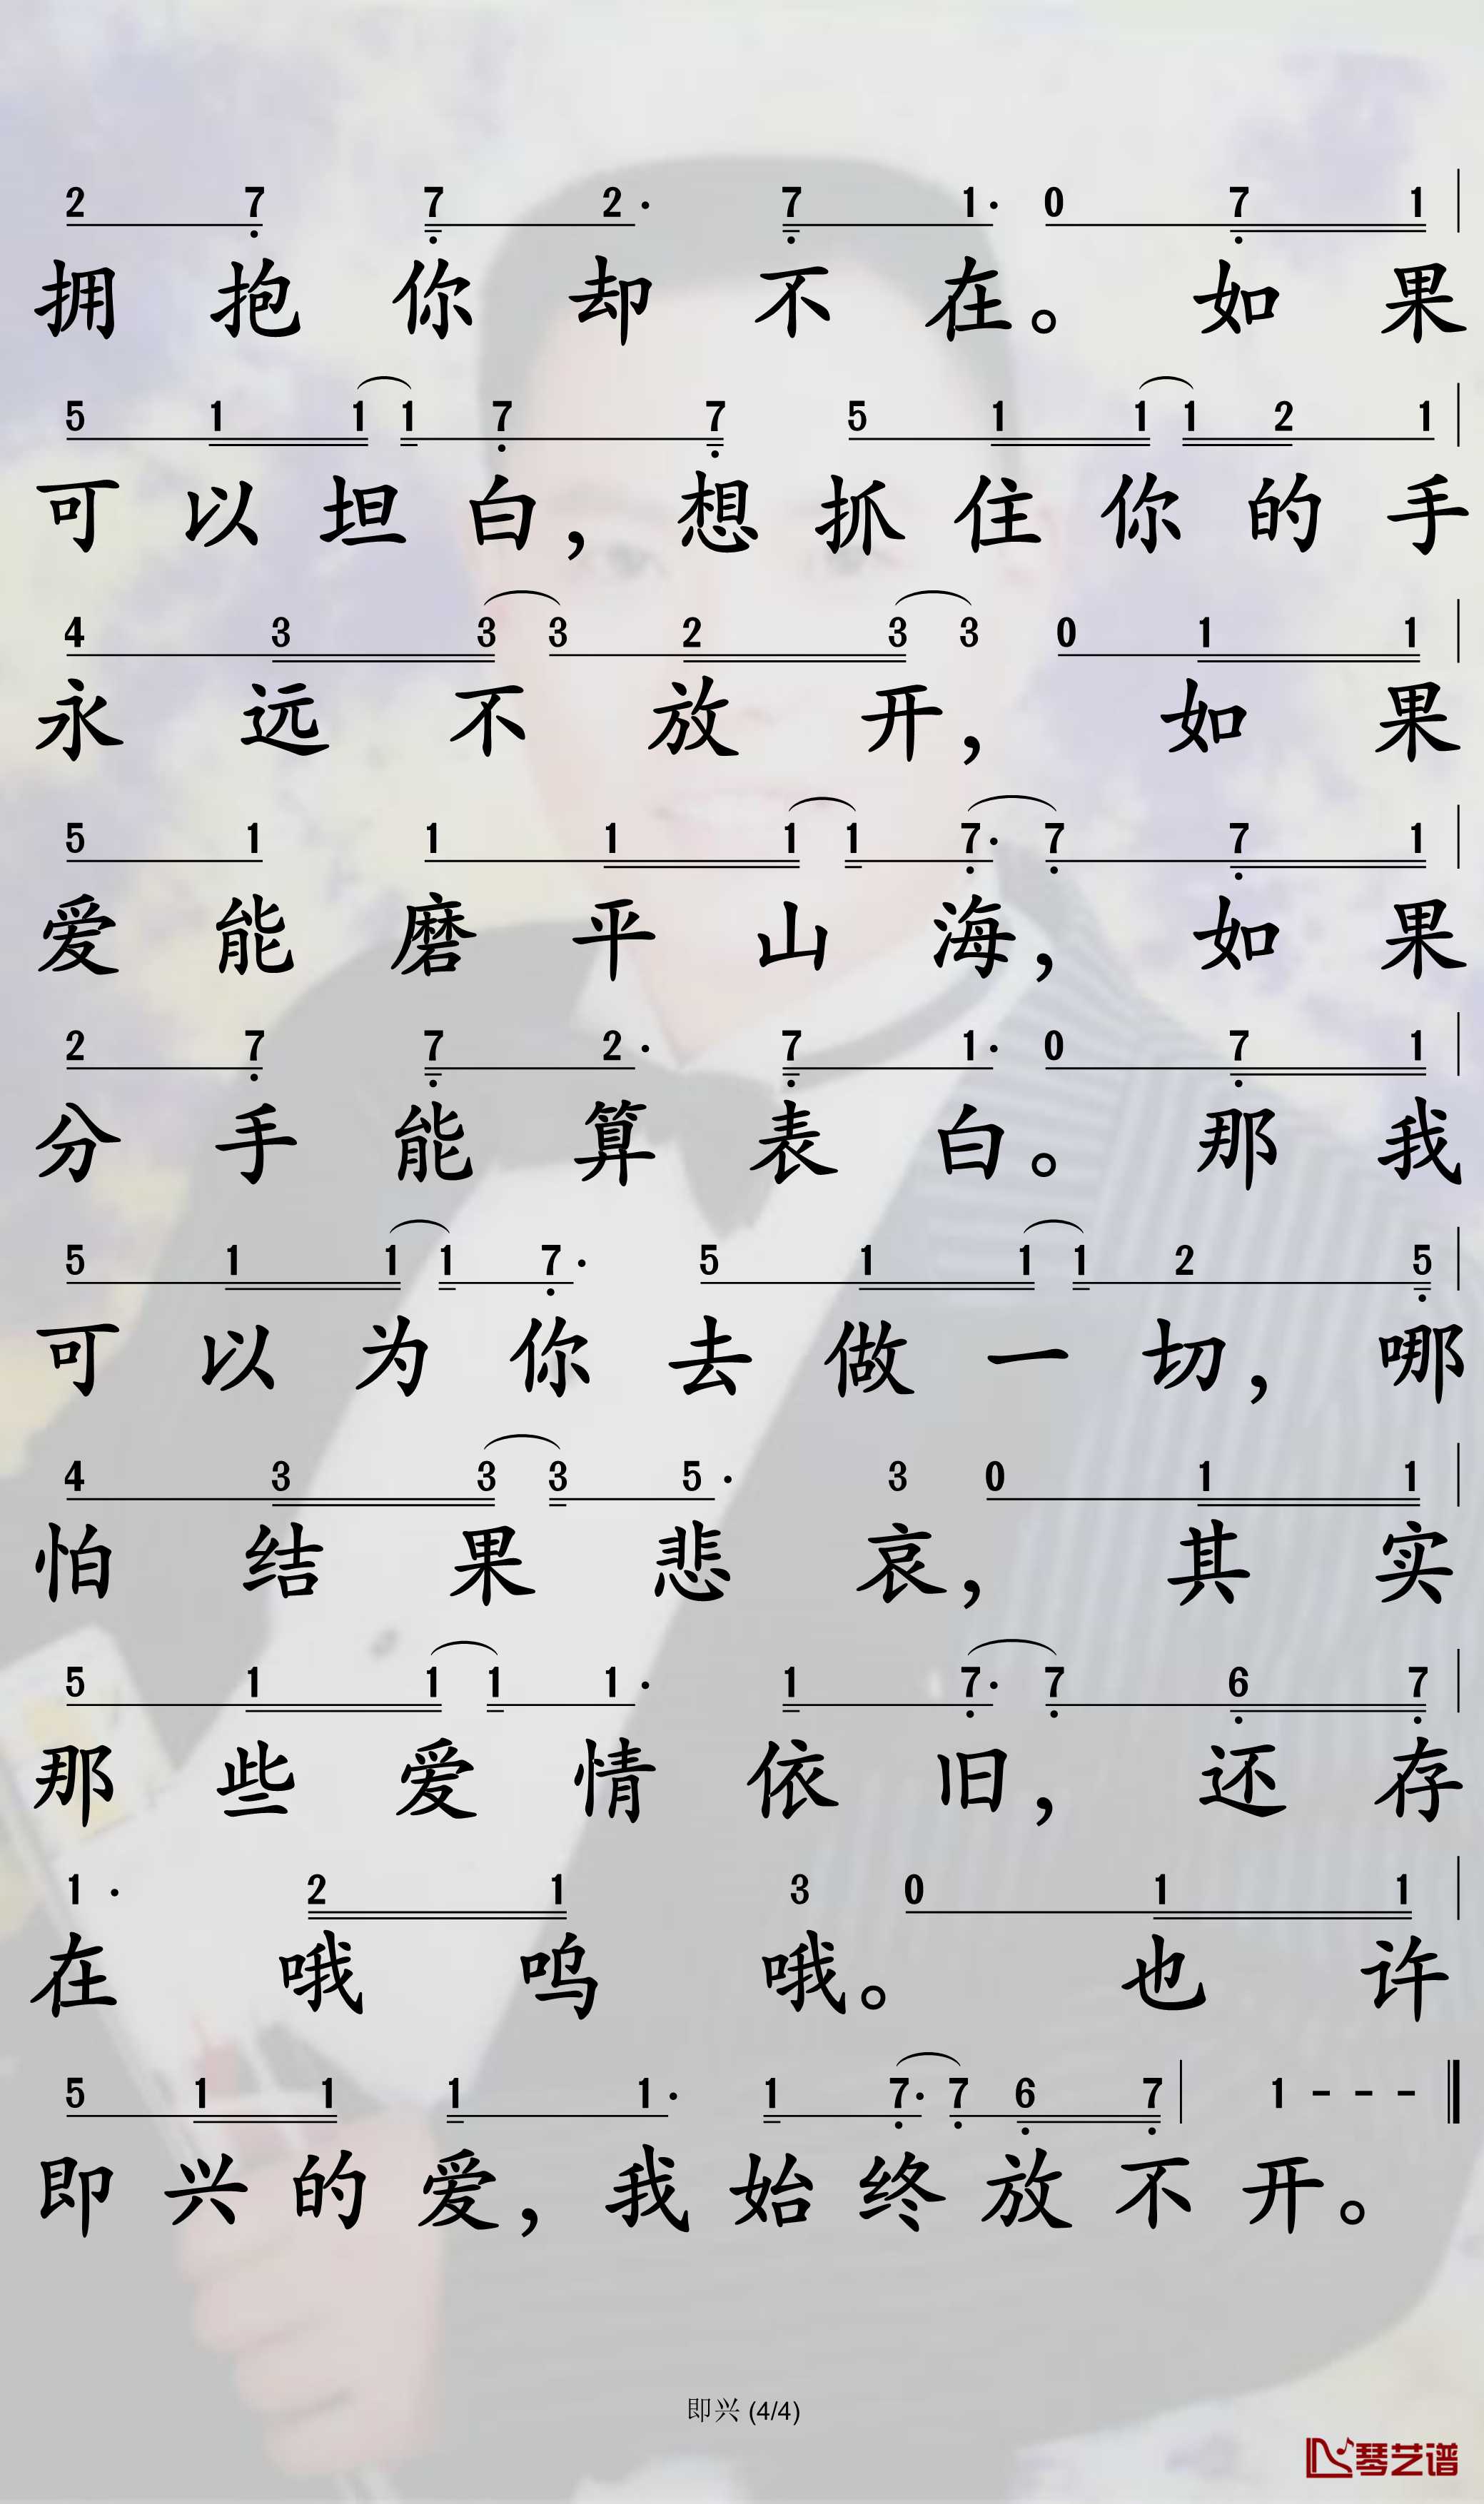 2 7 7 2· 7 1· 0 7 1 |
拥抱你却不在。如果
5 1 1 1 7 7 5 1 1 1 2 1 |
可以坦白，想抓住你的手
4 3 3 3 2 3 3 0 1 1 |
永远不放开，如果
5 1 1 1 1 1 7· 7 7 1 |
爱能磨平山海，如果
2 7 7 2· 7 1· 0 7 1 |
分手能算表白。那我
5 1 1 1 7· 5 1 1 1 2 5 |
可以为你去做一切，哪
4 3 3 3 5· 3 0 1 1 |
怕结果悲哀，其实
5 1 1 1 1· 1 7· 7 6 7 |
那些爱情依旧，还存
1· 2 1 3 0 1 1 |
在哦呜哦。也许
5 1 1 1 1· 1 7· 7 6 7 | 1 - - - ‖
即兴的爱，我始终放不开。
即兴 (4/4)
琴艺谱